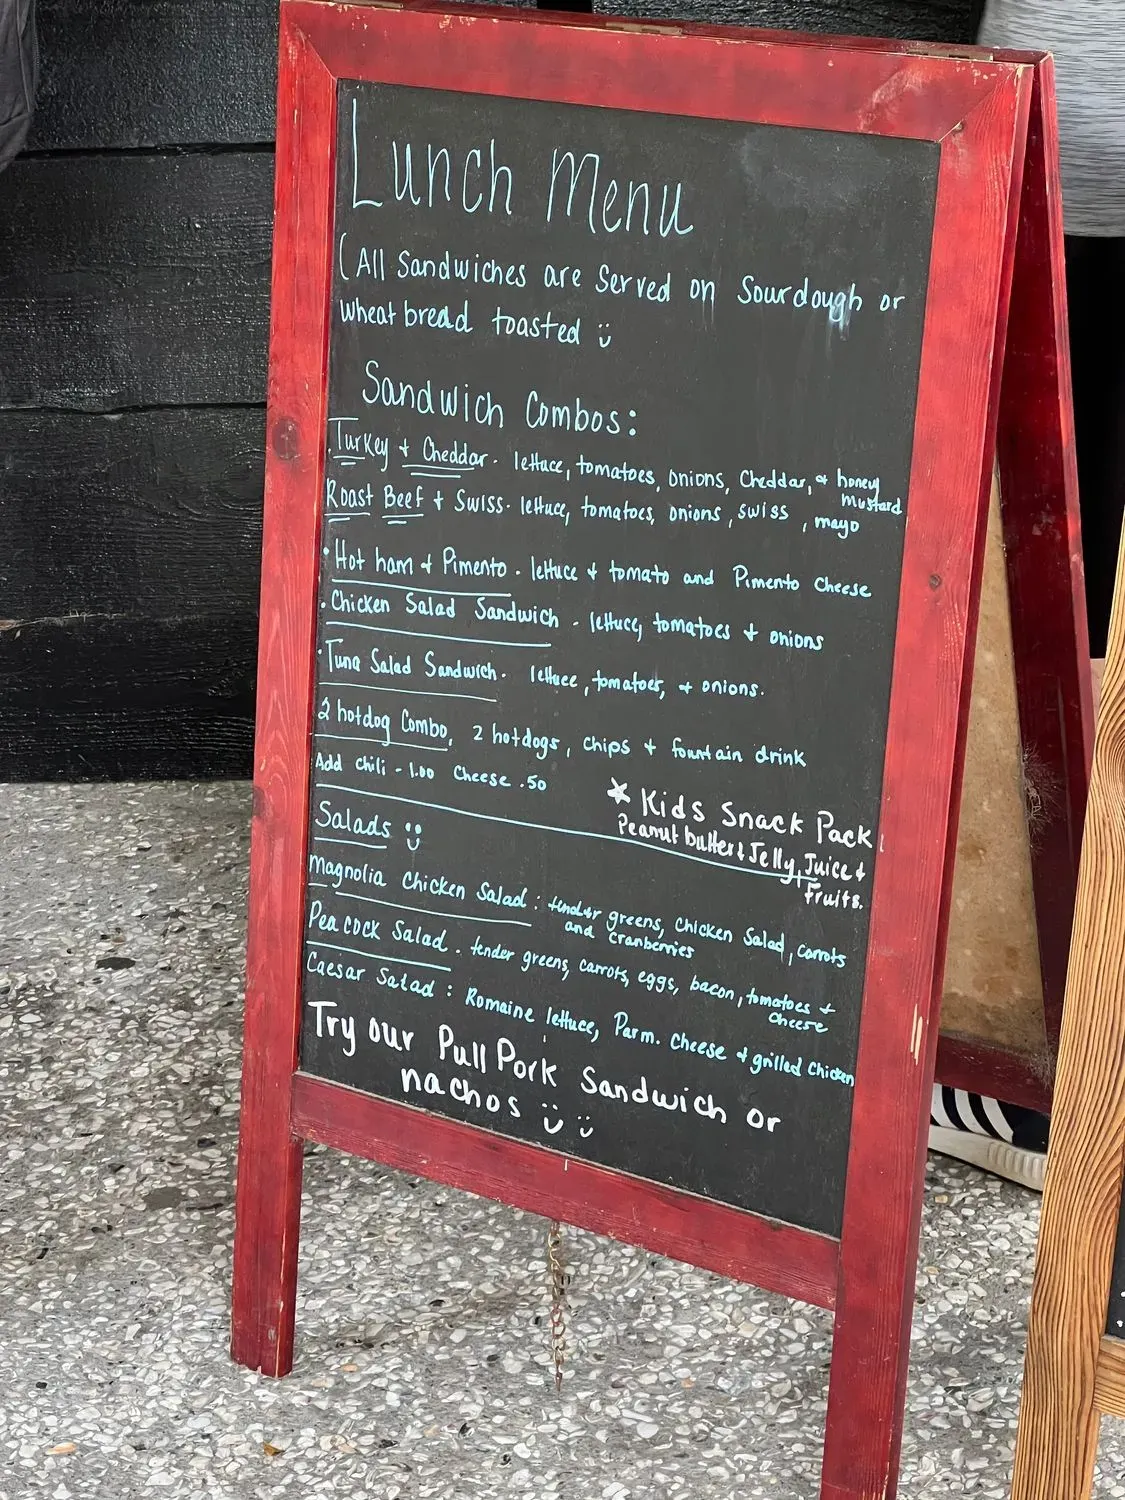 Lunch Menu
(All Sandwiches are Served on Sourdough or
wheat bread toasted
Sandwich Combos:
Turkey + Cheddar. lettuce, tomatoes, onions, Cheddar, + honey
mustard
Roast Beef + Swiss. lettuce, tomatoes, onions, swiss, mayo
Hot ham + Pimento. lettuce + tomato and Pimento Cheese
Chicken Salad Sandwich - lettuce, tomatoes + onions
Tuna Salad Sandwich. lettuce, tomatoes, + onions.
2 hotdog Combo, 2 hotdogs, chips + fountain drink
Add chili - 1.00 Cheese .50
★ Kids Snack Pack
Peanut butter & Jelly, Juice +
Fruits.
Salads
Magnolia Chicken Salad: tender greens, Chicken Salad, carrots
and cranberries
Peacock Salad. tender greens, carrots, eggs, bacon, tomatoes +
Cheese
Caesar Salad: Romaine lettuce, Parm. Cheese + grilled Chicken
Try our Pull Pork Sandwich or
nachos